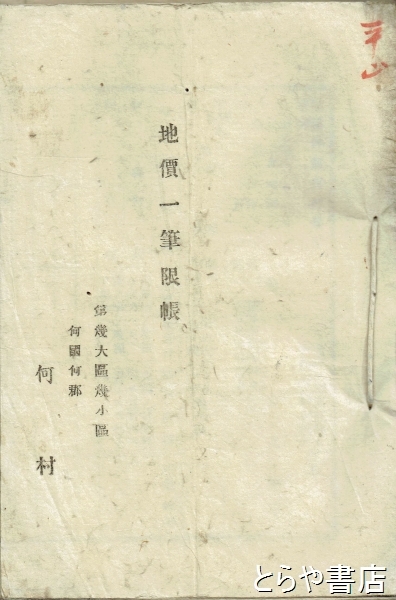 平山
地價一筆限帳
第幾大區幾小區
何國何郡
何村
とらや書店